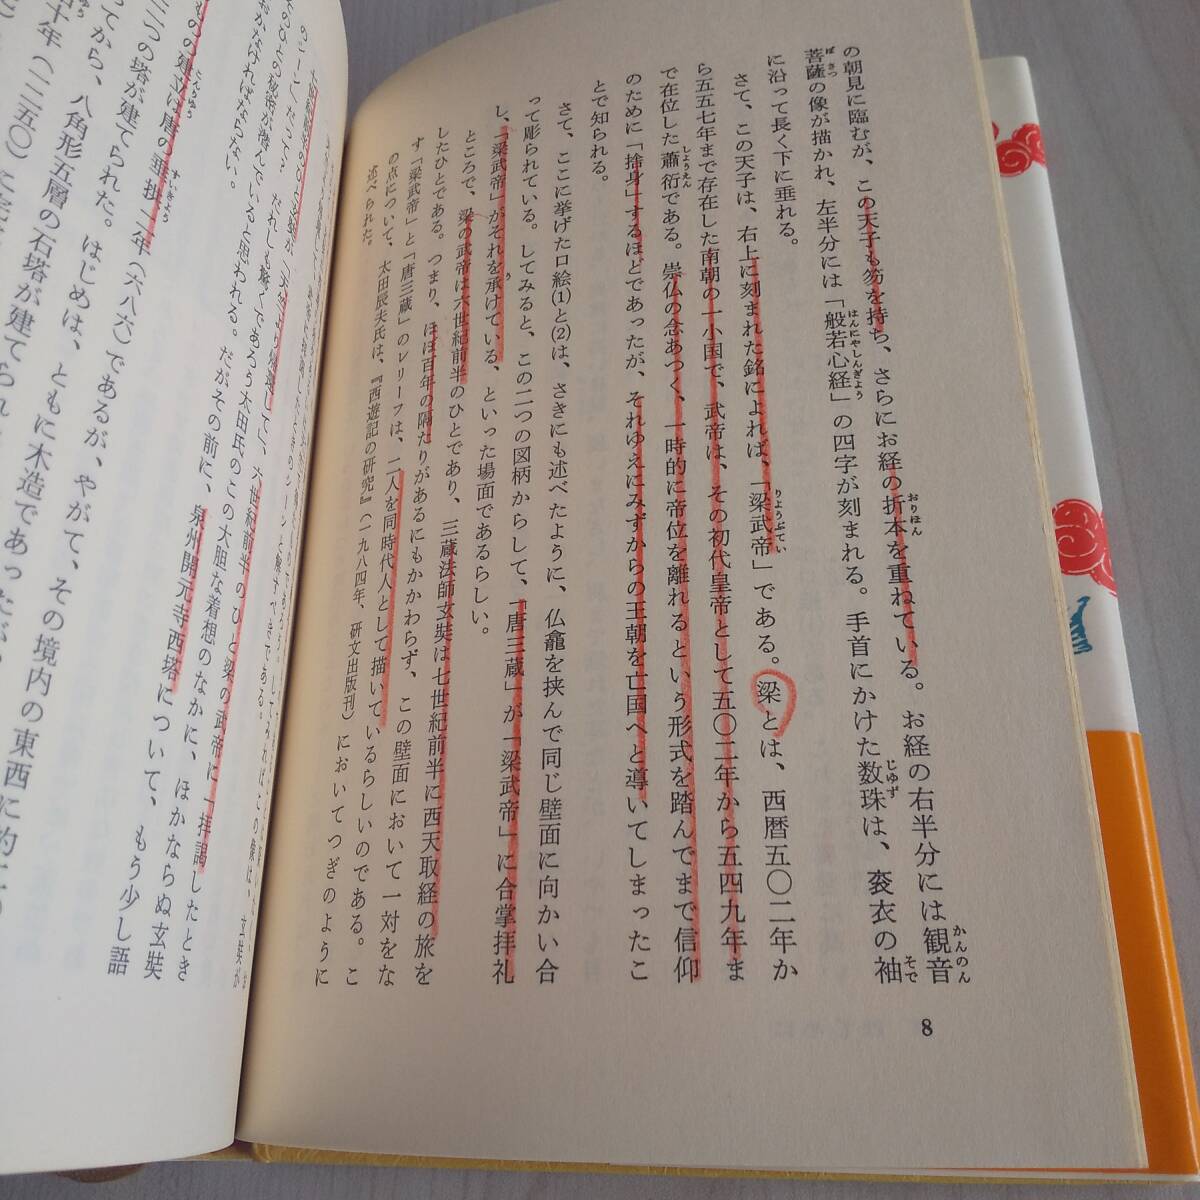 の朝見に臨むが、この天子も笏を持ち、さらにお経の折本を重ねている。お経の右半分には観音
菩薩の像が描かれ、左半分には「般若心経」の四字が刻まれる。手首にかけた数珠は、袞衣の袖
に沿って長く下に垂れる。
さて、この天子は、右上に刻まれた銘によれば、「梁武帝」である。梁とは、西暦五〇二年か
ら五五七年まで存在した南朝の一小国で、武帝は、その初代皇帝として五〇二年から五四九年ま
で在位した蕭衍である。崇仏の念あつく、一時的に帝位を離れるという形式を踏んでまで信仰
のために「捨身」するほどであったが、それゆえにみずからの王朝を亡国へと導いてしまったこ
とで知られる。
さて、ここに挙げた口絵⑴と⑵は、さきにも述べたように、仏龕を挟んで同じ壁面に向かい合
って彫られている。してみると、この二つの図柄からして、「唐三蔵」が「梁武帝」に合掌拝礼
し、「梁武帝」がそれを承けている、といった場面であるらしい。
ところで、梁の武帝は六世紀前半のひとであり、三蔵法師玄奘は七世紀前半に西天取経の旅を
したひとである。つまり、ほぼ百年の隔たりがあるにもかかわらず、この壁面において一対をな
す「梁武帝」と「唐三蔵」のレリーフは、二人を同時代人として描いているらしいのである。こ
の点について、太田辰夫氏は、『西遊記の研究』（一九八四年、研文出版刊）においてつぎのように
述べられた。
8
天竺より帰還して、六世紀前半のひと梁の武帝に、拝謁したとき
のシーンだって？　だれしも驚くであろう太田氏のこの大胆な着想のなかに、ほかならぬ玄奘
そのひとの秘密が潜んでいると思われる。だがその前に、泉州開元寺西塔について、もう少し語
おかなければならない。
ものの建立は唐の垂拱二年（六八六）であるが、やがて、その境内の東西に
二つの塔が建てられた。はじめは、ともに木造であったが、
てから、八角形五層の石塔が建てられ
十年（一二五〇）に